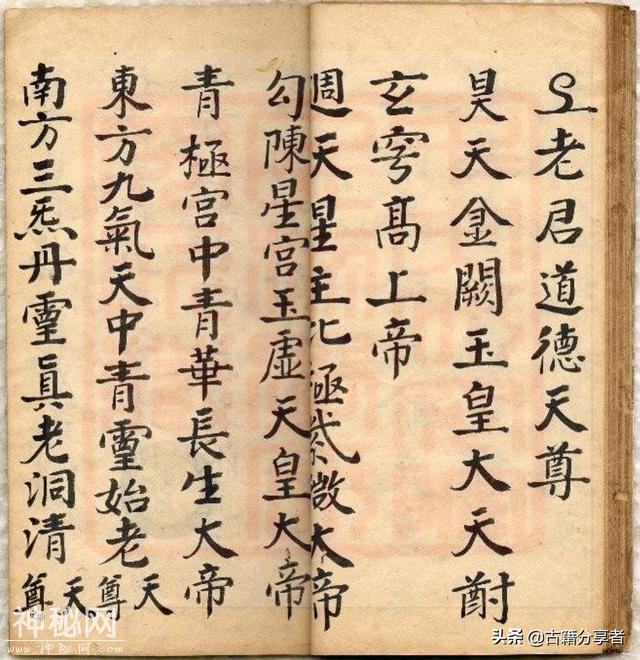 老君道德天尊
昊天金闕玉皇大天尊
玄穹髙上帝
週天星主北極紫微大帝
勾陳星宮玉虛天皇大帝
青極宮中青華長生大帝
東方九氣天中青靈始老天尊
南方三炁丹靈眞老洞清天尊
神秘网
头条 @古籍分享者